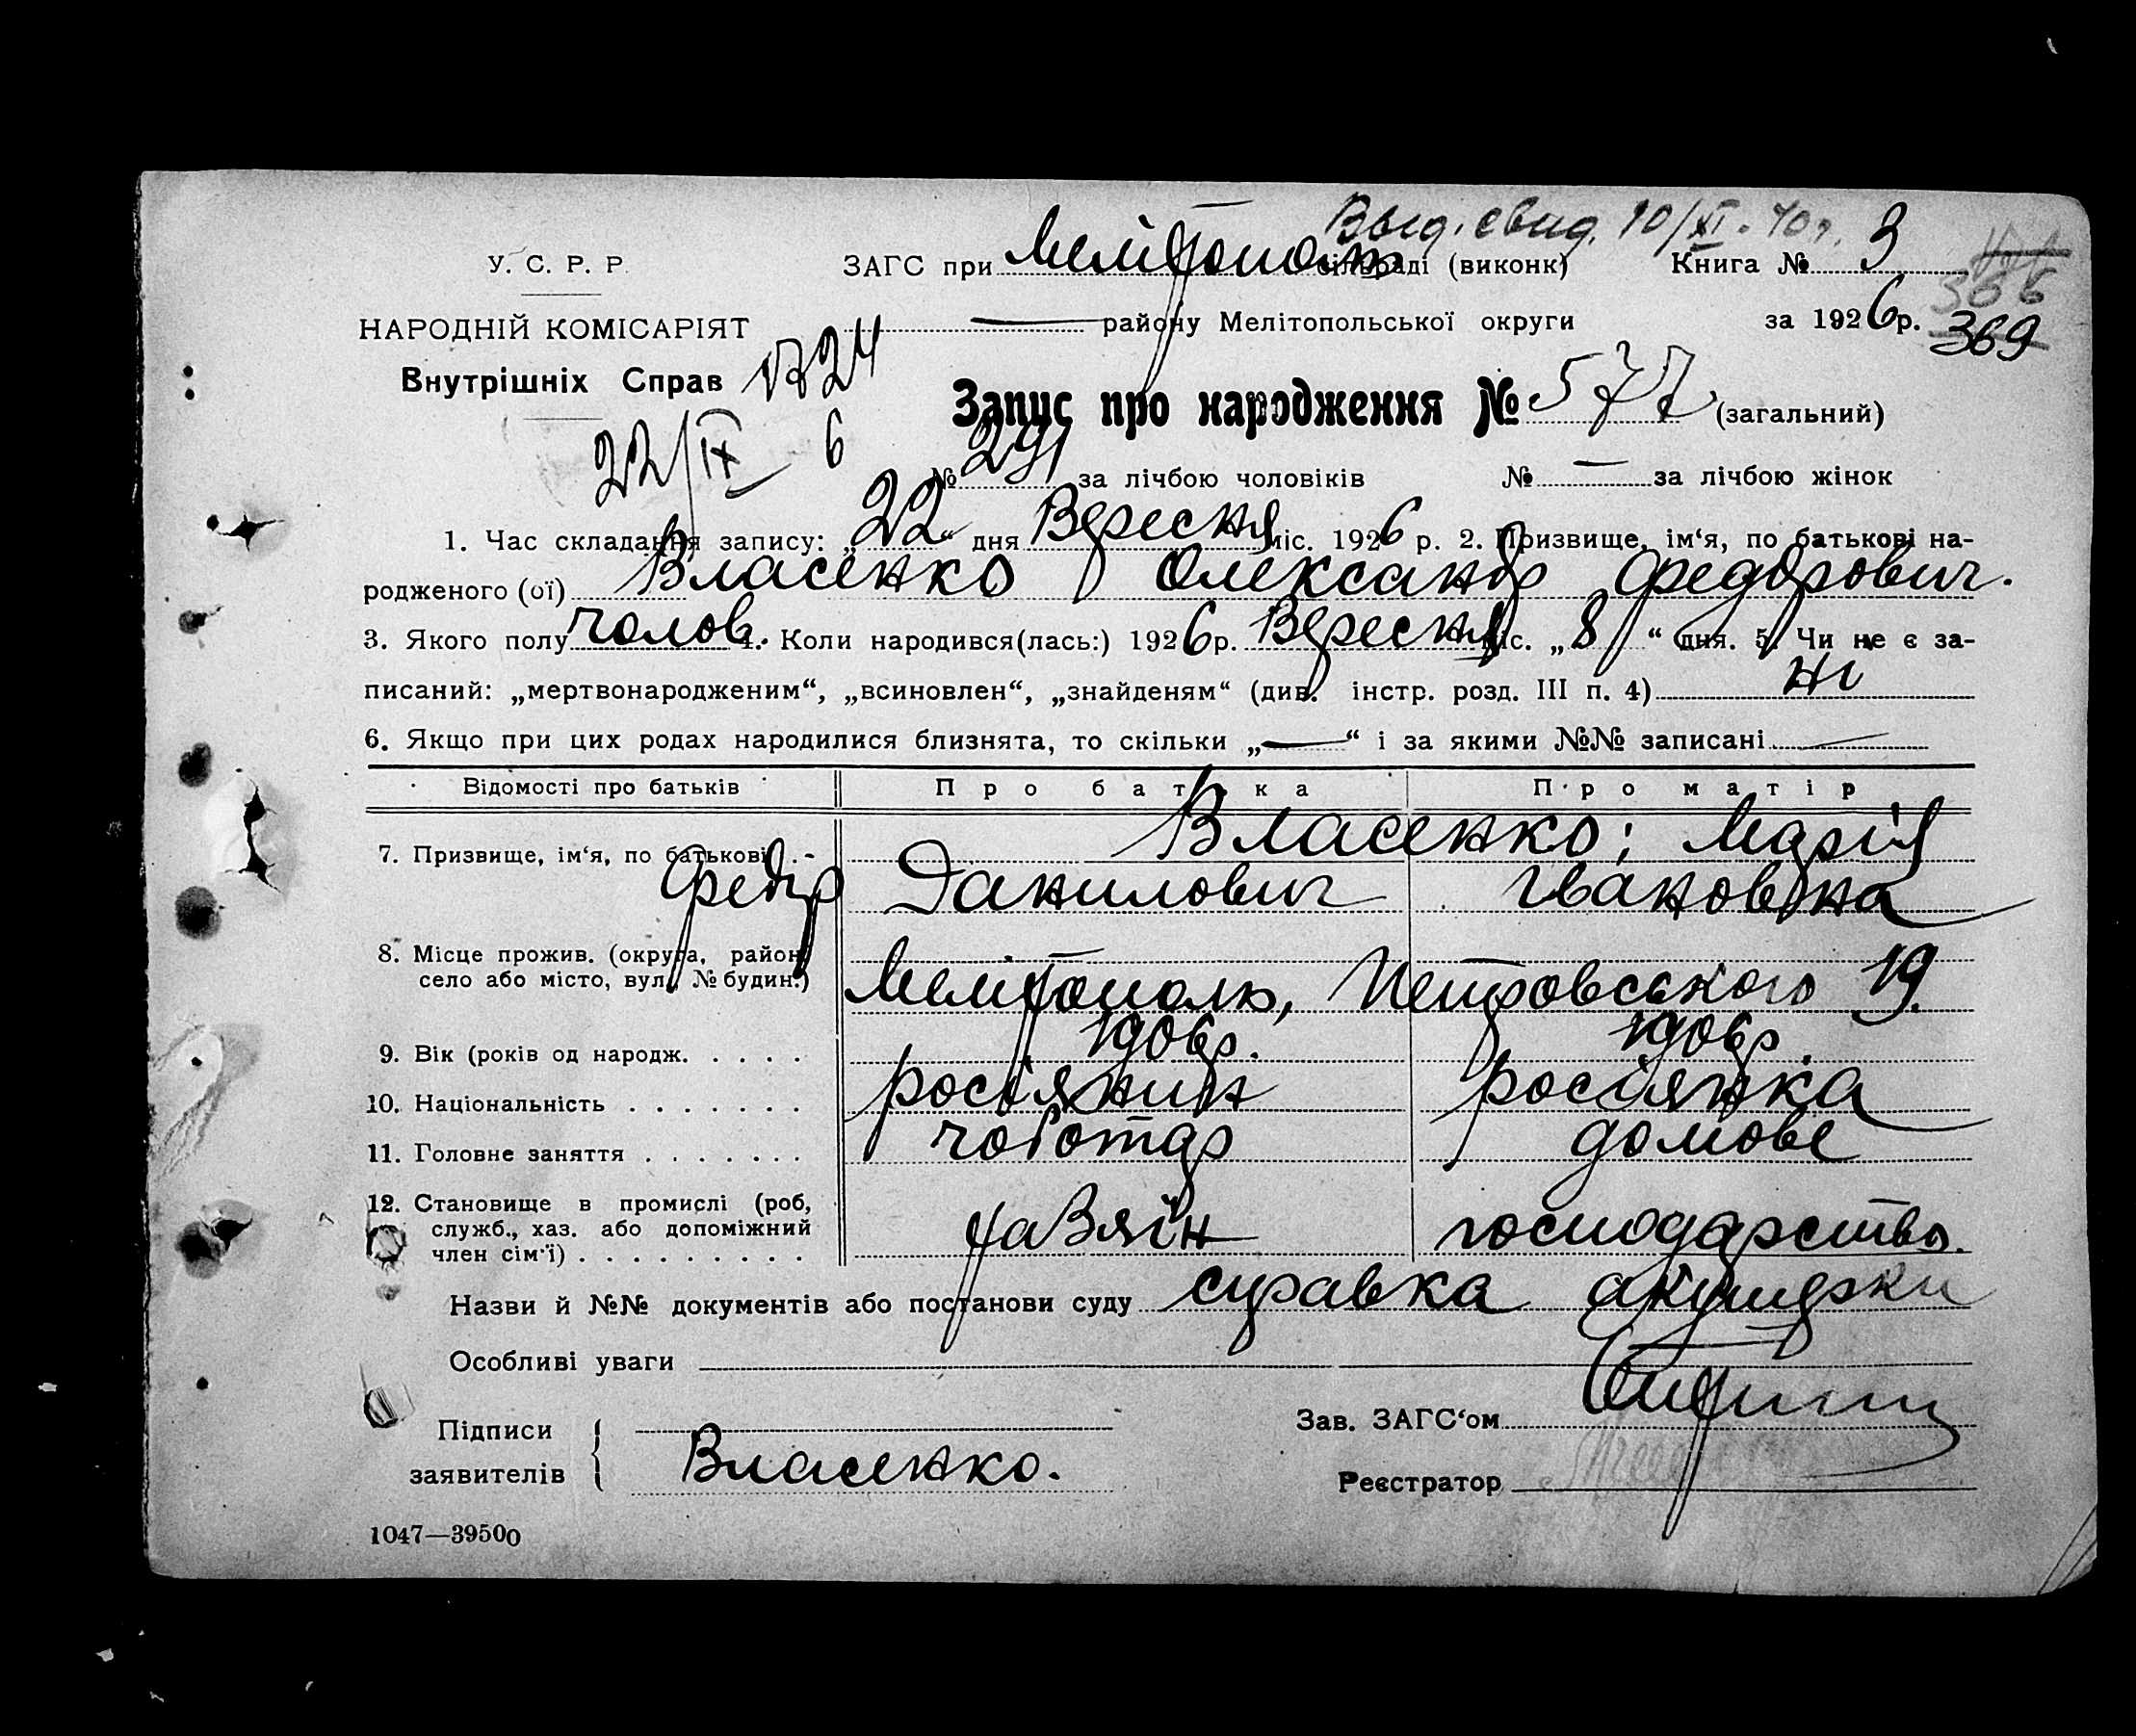 Выд. свид. 10/XI-40г.
У. С. Р. Р. ЗАГС при Мелітополь сільраді (виконк) Книга № 3
366
НАРОДНІЙ КОМІСАРІЯТ — району Мелітопольської округи за 1926р. 369
Внутрішніх Справ
Запис про народження № 577 (загальний)
22/IX 6
№ 291 за лічбою чоловіків № — за лічбою жінок
1. Час складання запису: „22“ дня Вересня міс. 1926 р. 2. Призвище, ім‘я, по батькові на-
родженого (ої) Власенко Олександр Федорович.
3. Якого полу чолов. 4. Коли народився(лась:) 1926р. Вересня міс. „8“ дня. 5. Чи не є за-
писаний: „мертвонародженим“, „всиновлен“, „знайденям“ (див. інстр. розд. III п. 4) ні
6. Якщо при цих родах народилися близнята, то скільки „—“ і за якими №№ записані —
Відомості про батьків Про батька Про матір
Власенко; Марія
7. Призвище, ім‘я, по батькові
Федір Данилович Івановна
8. Місце прожив. (округа, район,
село або місто, вул. № будин.) Мелітополь, Петровського 19.
9. Вік (років од народж. 1906р. 1906р.
10. Національність росіянин росіянка
11. Головне заняття чоботар домове
12. Становище в промислі (роб,
служб., хаз. або допоміжний
член сім‘ї) хазяїн господарство.
Назви й №№ документів або постанови суду справка акушерки
Особливі уваги
Підписи
Зав. ЗАГС‘ом
заявителів Власенко.
Реєстратор
1047—39500